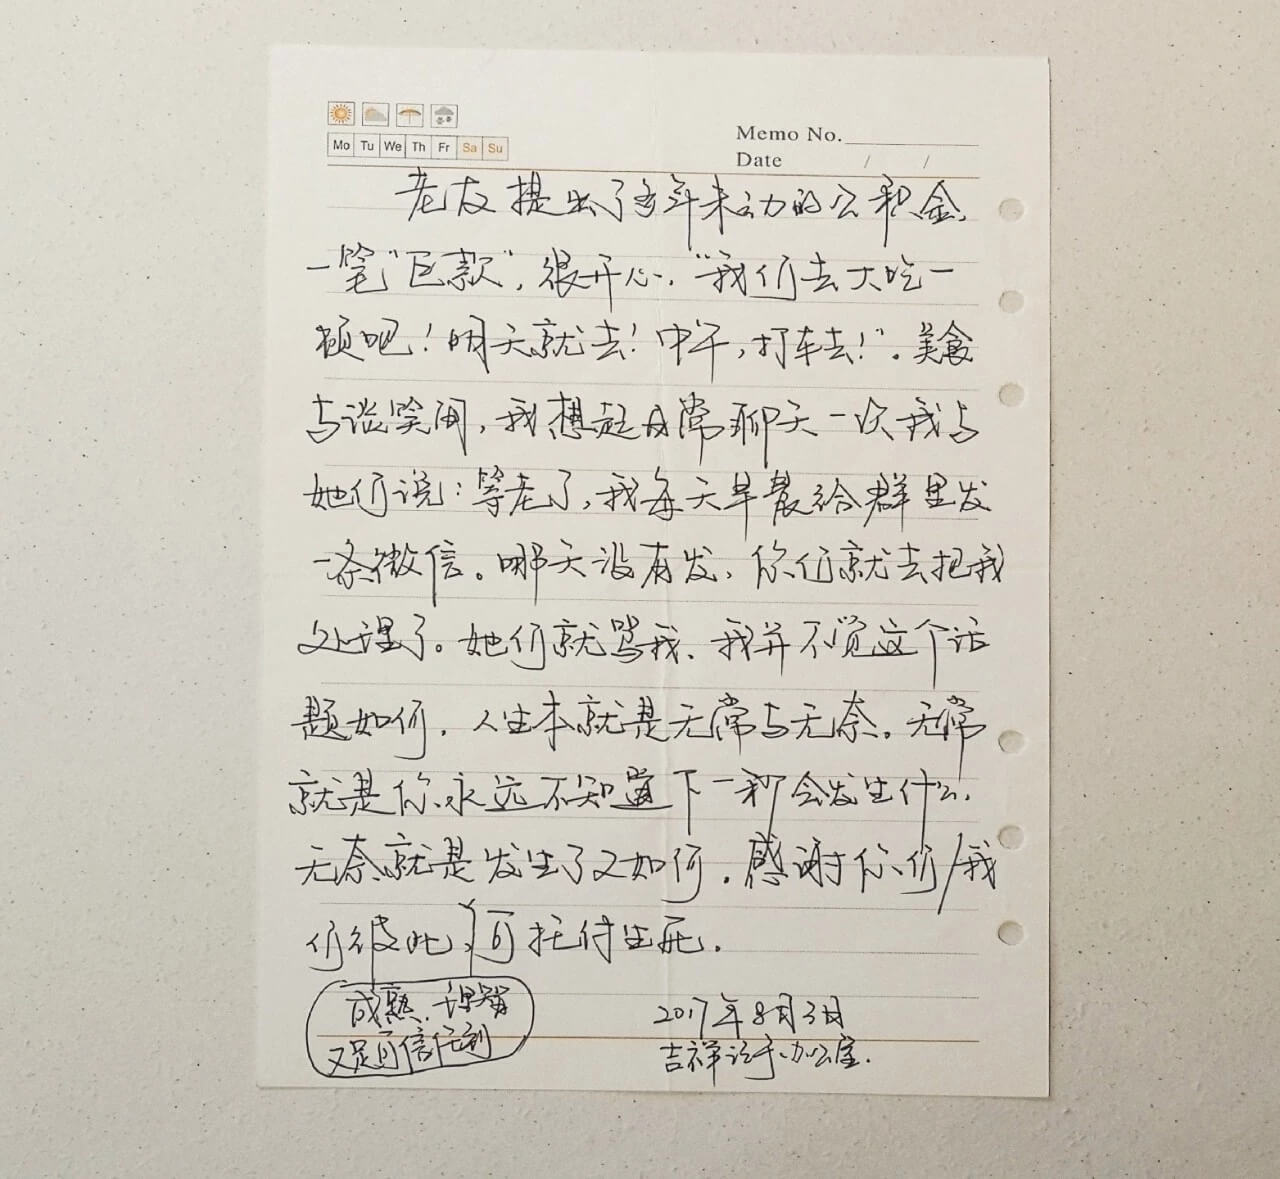 Mo Tu We Th Fr Sa Su
Memo No.
Date / /
老友提出了多年未动的公积金,
一笔“巨款”,很开心.“我们去大吃一
顿吧!明天就去!中午,打车去!”。美食
与谈笑间,我想起日常聊天一次我与
她们说:等老了,我每天早晨给群里发
一条微信。哪天没有发、你们就去把我
处理了。她们就骂我、我并不觉这个话
题如何,人生本就是无常与无奈。无常
就是你永远不知道下一秒会发生什么,
无奈就是发生了又如何.感谢你们/我
们彼此、可托付生死.
成熟、理智
又是可信任到
2017年8月3日
吉祥记于办公室.